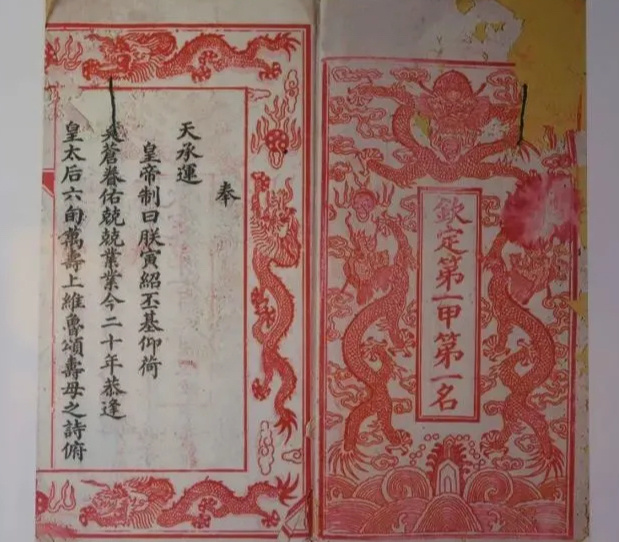 欽定第一甲第一名
奉
天承運
皇帝制曰朕寅紹丕基仰荷
蒼眷佑兢兢業業今二十年恭逢
皇太后六旬萬壽上維魯頌壽母之詩俯